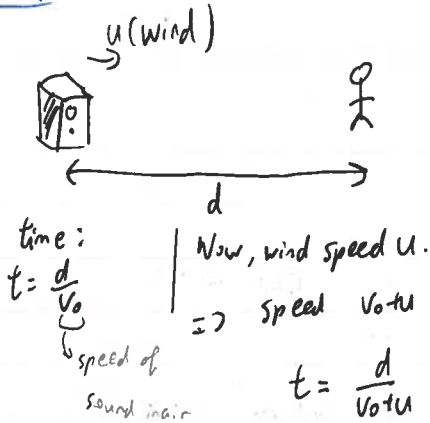 u(wind)
d
time:
t = d/v₀
speed of
sound in air
Now, wind speed u.
=> speed v₀+u
t = d/(v₀+u)